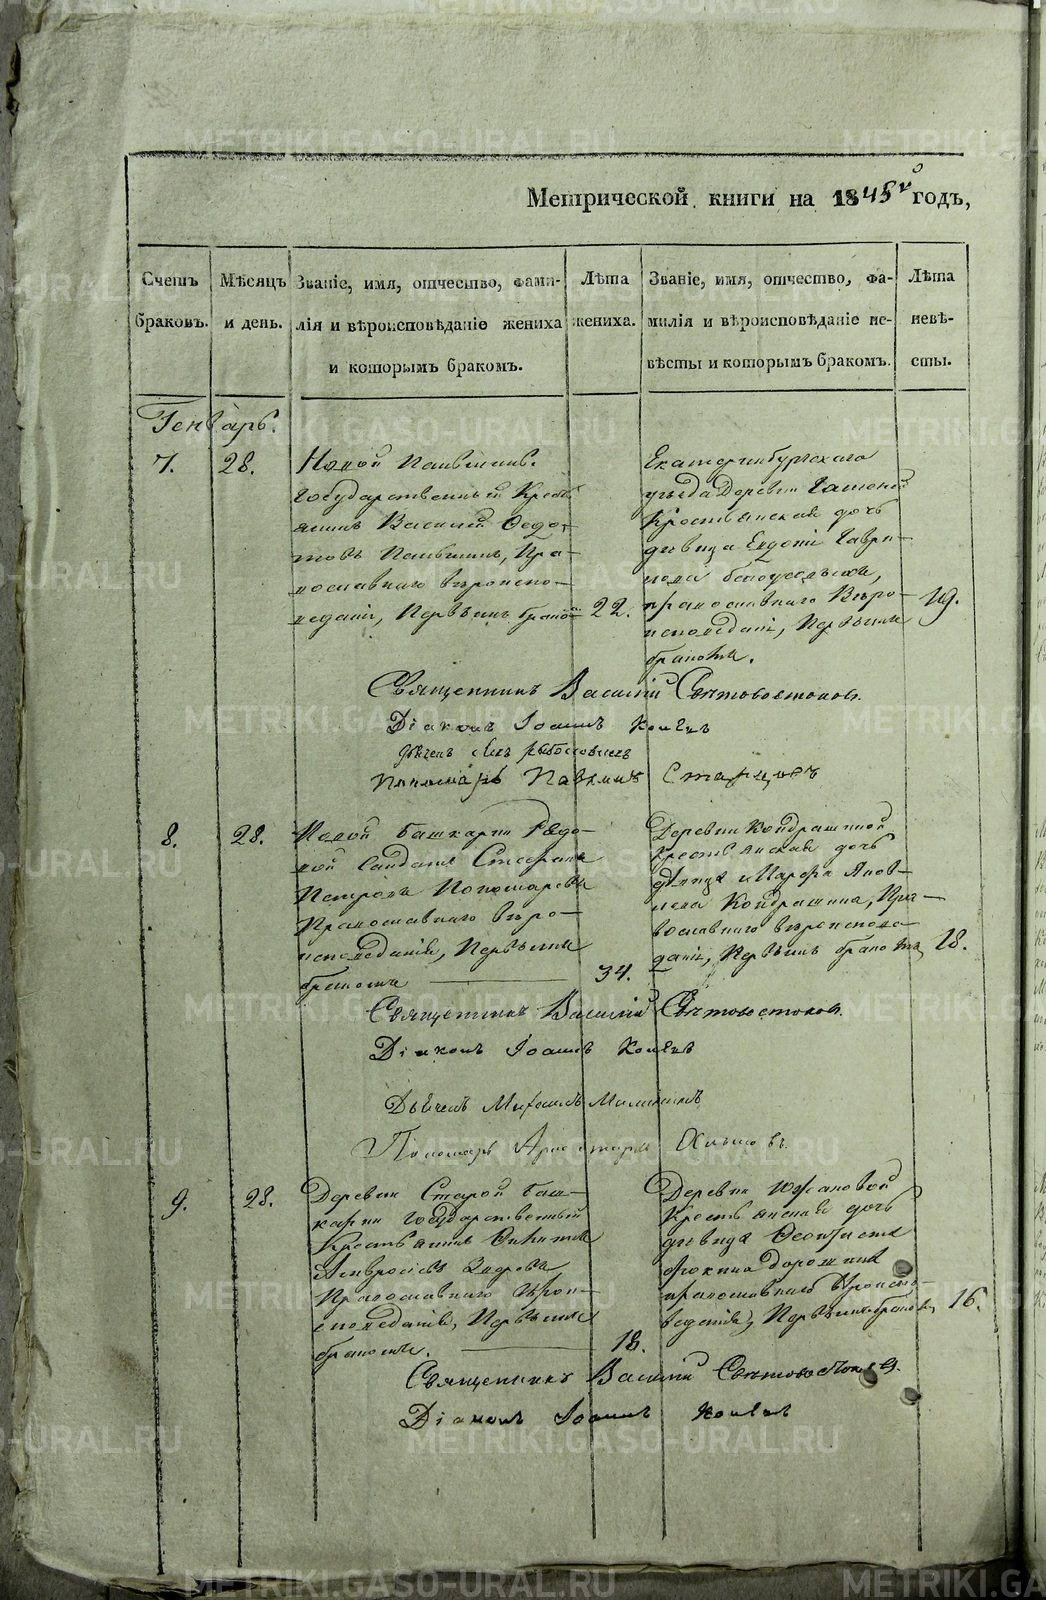 Метрической книги на 1845й годъ,
Счетъ браковъ.
Мѣсяцъ и день.
Званіе, имя, отчество, фами-
лія и вѣроисповѣданіе жениха
и которымъ бракомъ.
Лѣта жениха.
Званіе, имя, отчество, фа-
милія и вѣроисповѣданіе не-
вѣсты и которымъ бракомъ.
Лѣта невѣ-
сты.
Генварь.
7.
28.
Государственный Крест
янинъ Василій Ѳедо
товъ Паньшинъ, Пра-
вославнаго вѣроиспо-
веданія, Первымъ брако
22.
Екатеринбургскаго
уѣзда Деревни
Крестьянская дочь
девица Евдокія Гаври-
лова
православнаго Вѣро-
исповеданія, Первымъ
бракомъ.
19.
Священникъ Василій Свѣтовостоковъ.
Діаконъ Іоаннъ
Пономарь Павелъ Старцовъ
8.
28.
Новой Башкарки
Стефанъ
Петровъ Пономаревъ
Православнаго вѣро-
исповеданія, Первымъ
бракомъ
34.
Деревни Кондрашиной
крестьянская дочь
девица Марфа Яков-
лева Кондрашина, Пра-
вославнаго вѣроиспове
данія, Первымъ бракомъ
18.
Священникъ Василій Свѣтовостоковъ.
Діаконъ Іоаннъ
Дьячекъ Михаилъ
Пономарь
9.
28.
Деревни Старой Баш-
карки Государственный
Крестьянинъ Никита
Амвросіевъ
Православнаго вѣрои-
споведанія, Первымъ
бракомъ.
18.
Деревни Южаковой
Крестьянская дочь
девица Ѳеоктиста
православнаго вѣроиспо-
веданія, Первымъ бракомъ
16.
Священникъ Василій Свѣтовостоковъ.
Діаконъ Іоаннъ
METRIKI.GASO-URAL.RU